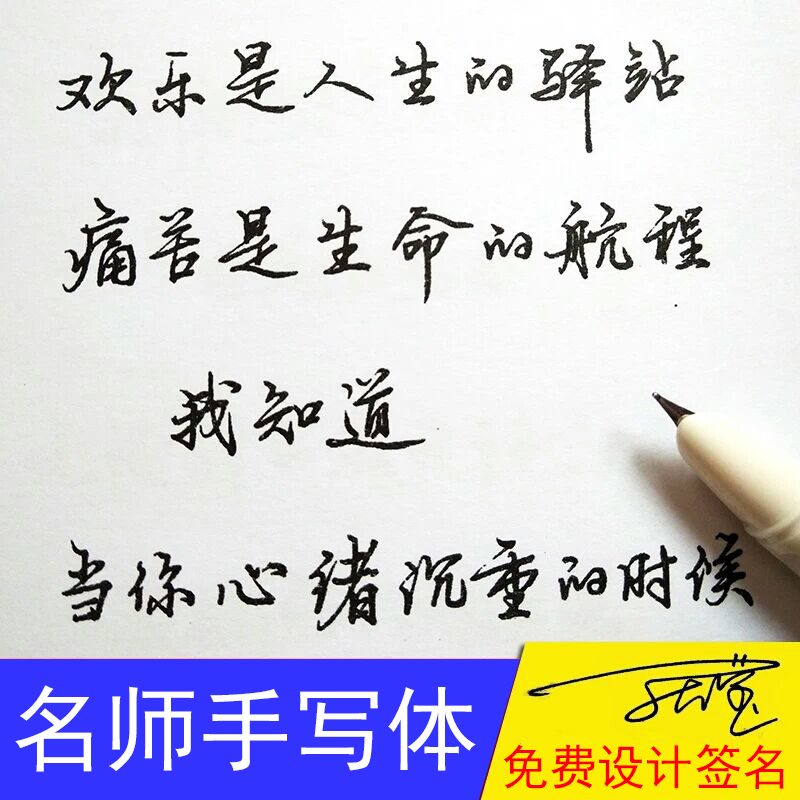 欢乐是人生的驿站
痛苦是生命的航程
我知道
当你心绪沉重的时候
名师手写体
免费设计签名